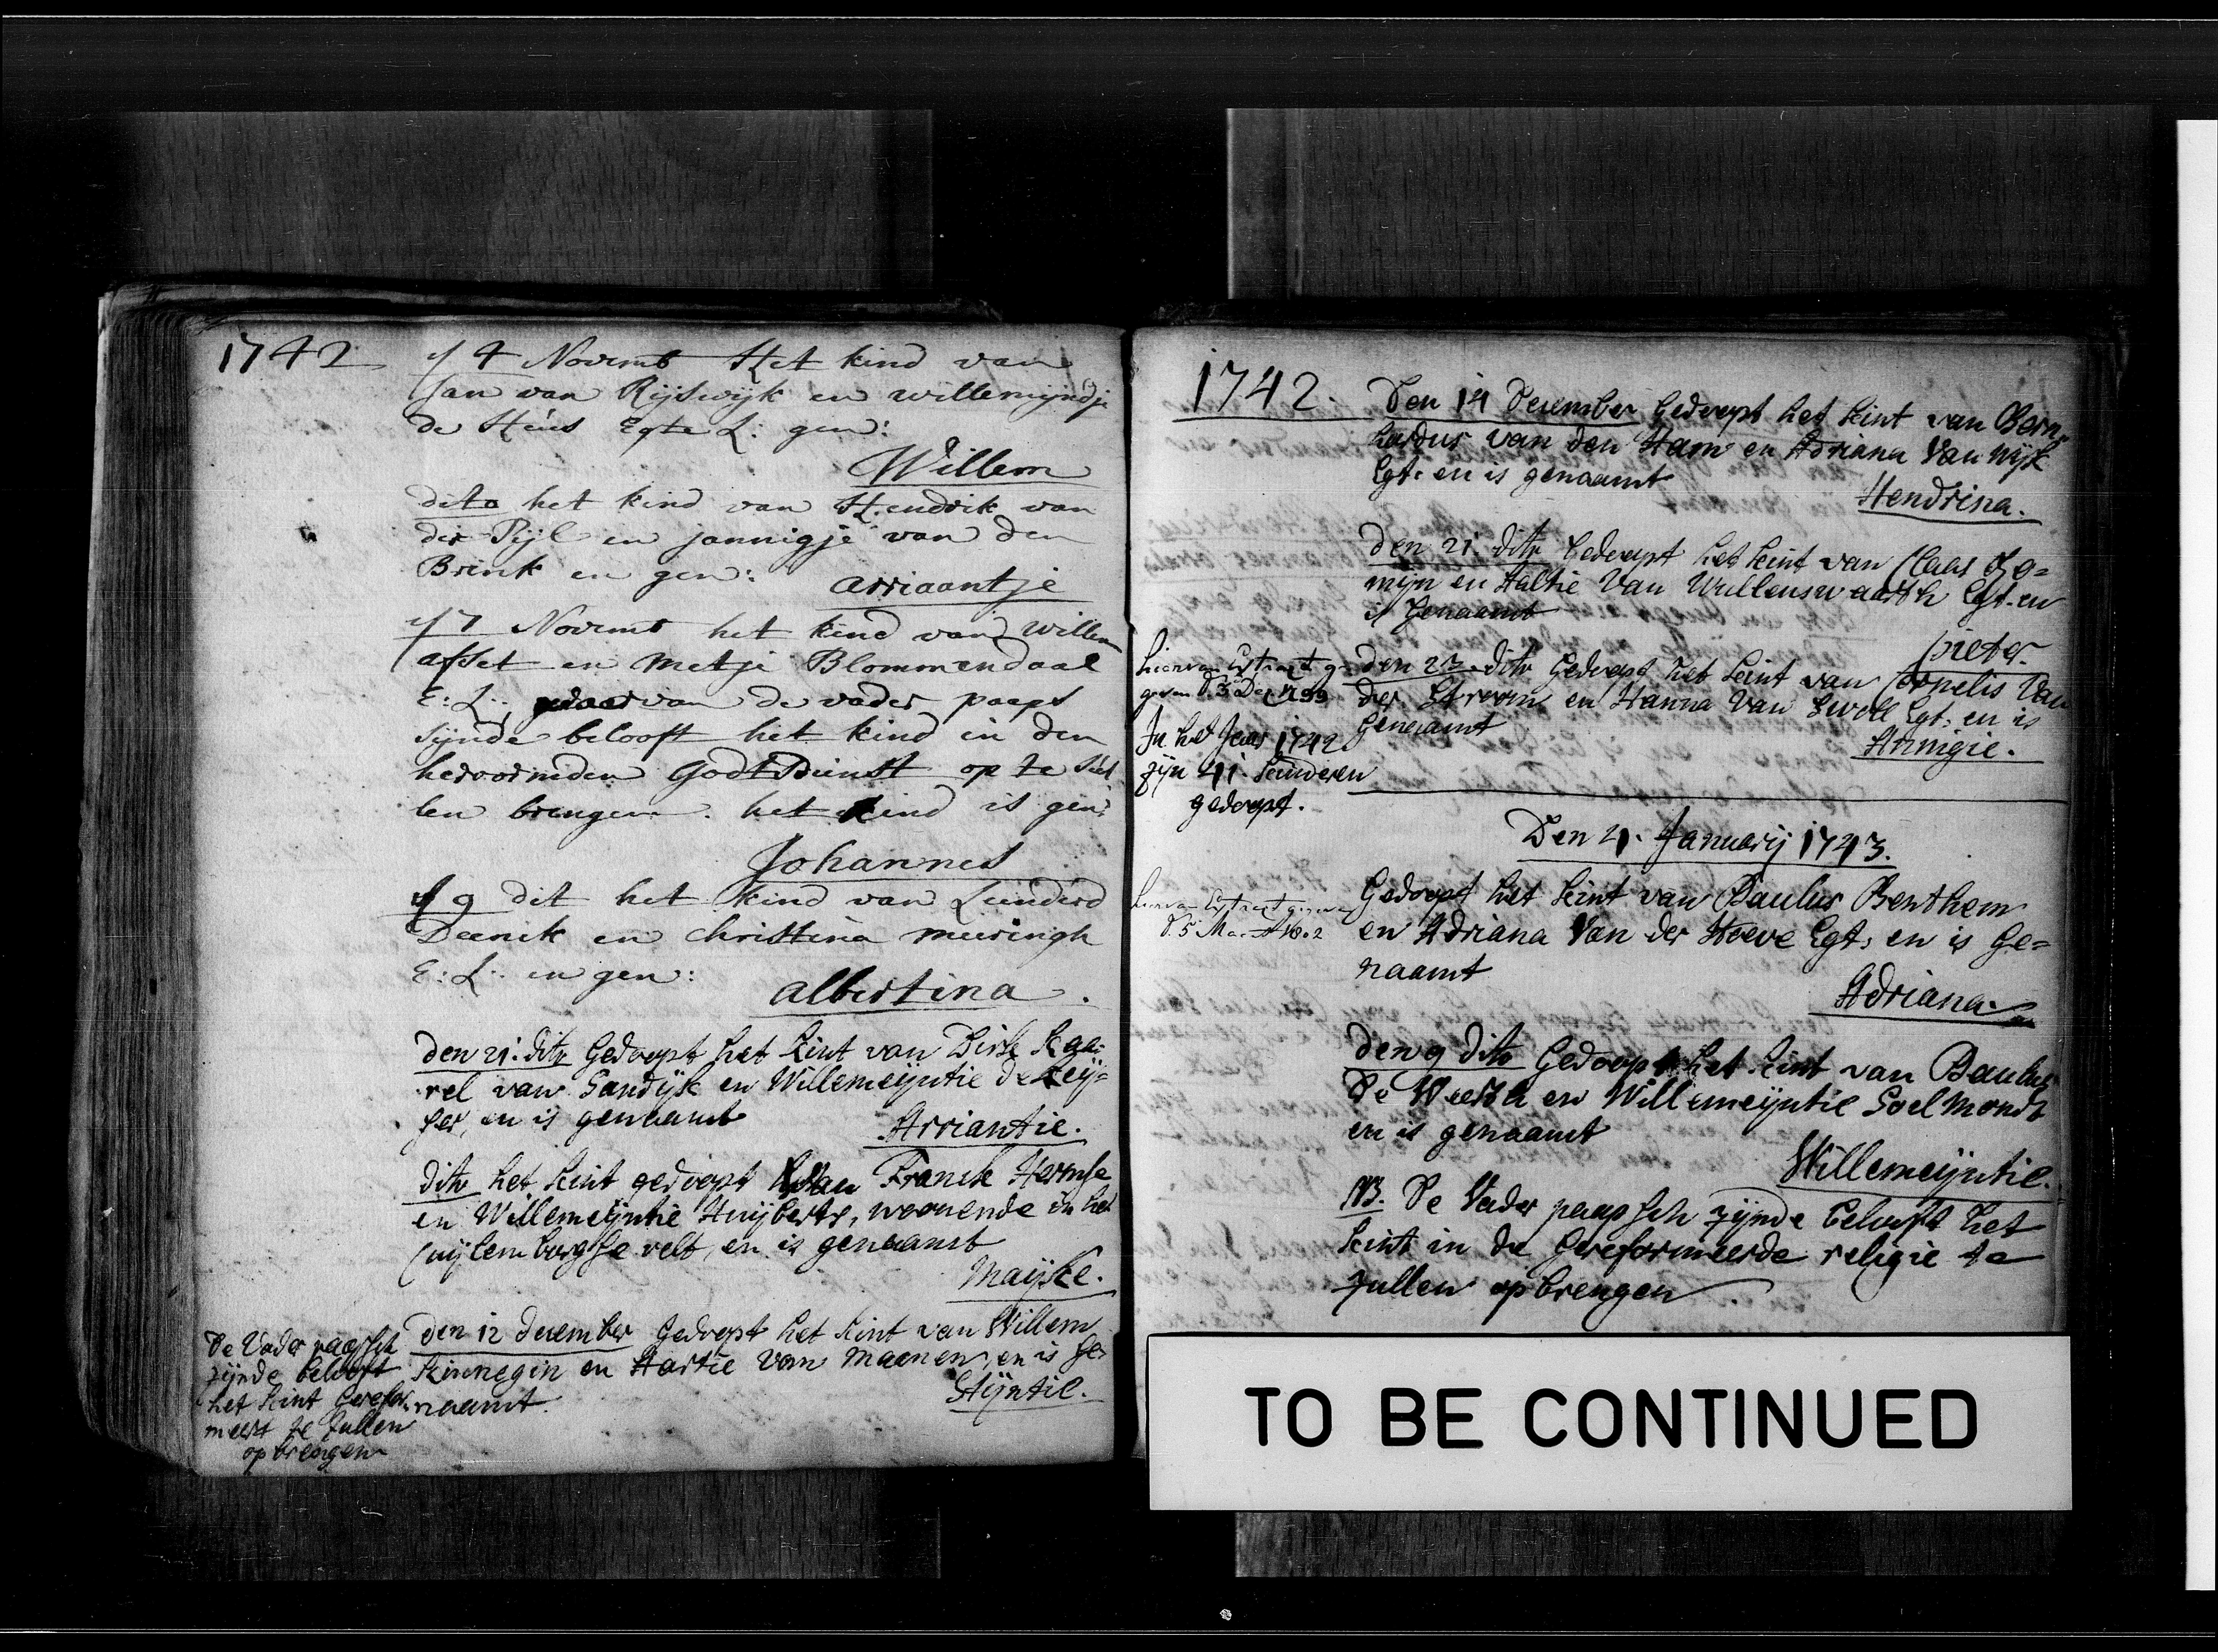 1742
d 4 Novemb Het kind van
Jan van Rijswijk en willemijndje
de Heus Egte L: gen:
Willem
dito het kind van Hendrik van
der Pijl en jannigje van den
Brink en gen:
arriaantje
d 7 Novemb het kind van Willem
en Metje Blommendaal
E: L: waarvan de vader paeps
sijnde belooft het kind in den
hervormden GodtDienst op te sul
len brengen. het kind is gen:
Johannes
d 9 dit het kind van Leenderd
Deenik en Christina meeringh
E: L: en gen:
albertina.
den 21. dito Gedoopt het kint van Dirk Kaa=
rel van Sandijk en Willemeijntie de Keij=
ser, en is genaamt
Arriantie.
dito het kint gedoopt van Franck Hermse
en Willemeijntie Huijberts, woonende in het
Cuijlemborghse velt, en is genaamt
Maijke.
den 12 december Gedoopt het kint van Willem
Kinnegin en Hartie van Maanen, en is ge=
naamt.
Stijntie.
De Vader paapsch
zijnde belooft
het kint Gerefor=
meert te zullen
opbrengen
1742.
Den 14 December Gedoopt het kint van Bern=
hardus van den Ham en Adriana Van Wijk
Egt: en is genaamt
Hendrina.
den 21. dito Gedoopt het kint van Claas
mijn en Aaltie Van Wullenswaardh Egt. en
is Genaamt
pieter.
hiervan Extract ge=
geven d. 3 Dec 1799
den 23. dito Gedoopt het kint van Cornelis Van
der Stroom en Hanna Van Swoll Egt: en is
Genaamt
Annigie.
In het Jaar 1742
zijn 41. kinderen
gedoopt.
Den 21. Januarij 1743.
hiervan Extract gegeven
d. 5 Maart 1802
Gedoopt het kint van Paulus Benthem
en Adriana Van der Hoeve Egt: en is Ge=
naamt
Adriana.
den 9 dito Gedoopt het kint van Paulus
De Weerdt en Willemeijntie Soelmondt
en is genaamt
Willemeijntie.
NB. De Vader paapsch zijnde belooft het
kint in de Gereformeerde religie te
zullen opbrengen.
TO BE CONTINUED